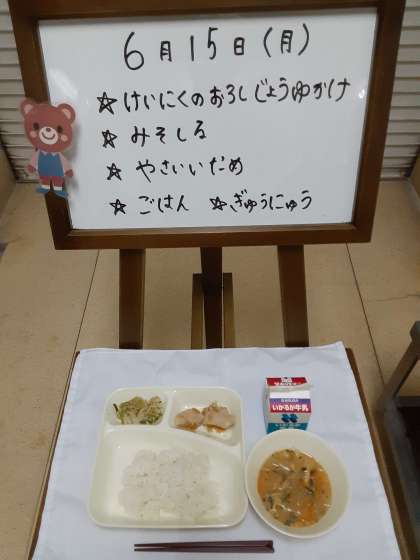 6月15日(月)
☆けいにくのおろしじょうゆかけ
☆みそしる
☆やさいいため
☆ごはん ☆ぎゅうにゅう
いかるが牛乳